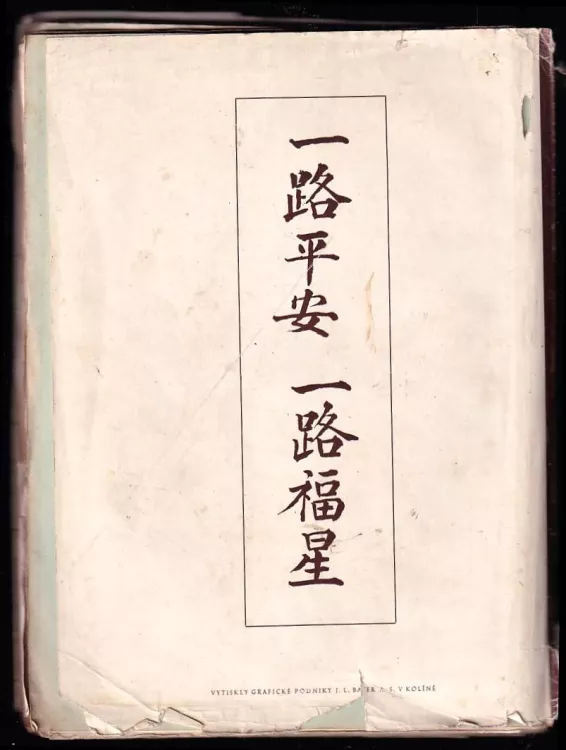 一路平安 一路福星
VYTISKLY GRAFICKÉ PODNIKY J. L. BAYER A. S. V KOLÍNĚ